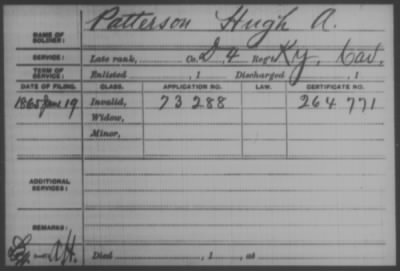 Patterson Hugh A.
NAME OF SOLDIER:
SERVICE: Late rank, Co. D, 4 Reg't Ky. Cav.
TERM OF SERVICE: Enlisted , 1 Discharged , 1
DATE OF FILING. CLASS. APPLICATION NO. LAW. CERTIFICATE NO.
1865 June 19 Invalid, 73 288 264 771
Widow,
Minor,
ADDITIONAL SERVICES:
REMARKS:
Died , 1 , at